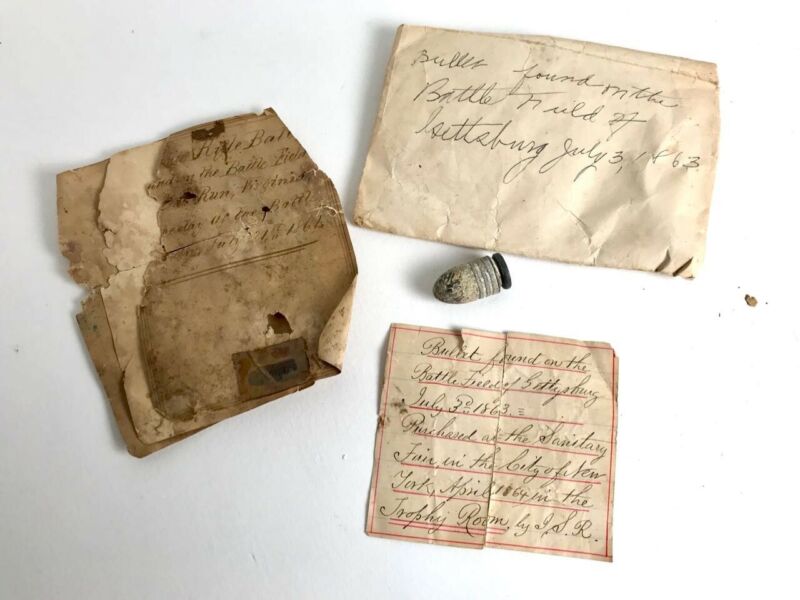 Rifle Ball
on the Battle Field
Run, Virginia
of the Battle
July 21st 1861
Bullet found on the
Battle Field of
Gettsburg July 3, 1863
Bullet found on the
Battle Field of Gettysburg
July 3d 1863 =
Purchased at the Sanitary
Fair, in the City of New
York, April 1864 in the
Trophy Room, by I. S. R.